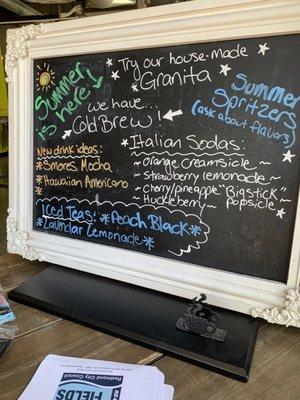 Summer
is here!
Try our house-made
Granita
we have...
Cold Brew!
Summer
Spritzers
(ask about flavors)
New drink ideas:
Smores Mocha
Hawaiian Americano
Italian Sodas:
~ Orange creamsicle ~
~ Strawberry lemonade ~
~ cherry/pineapple "Bigstick" ~
~ Huckleberry popsicle ~
Iced Teas: Peach Black
Lavendar Lemonade
Redmond City Council
FIELDS